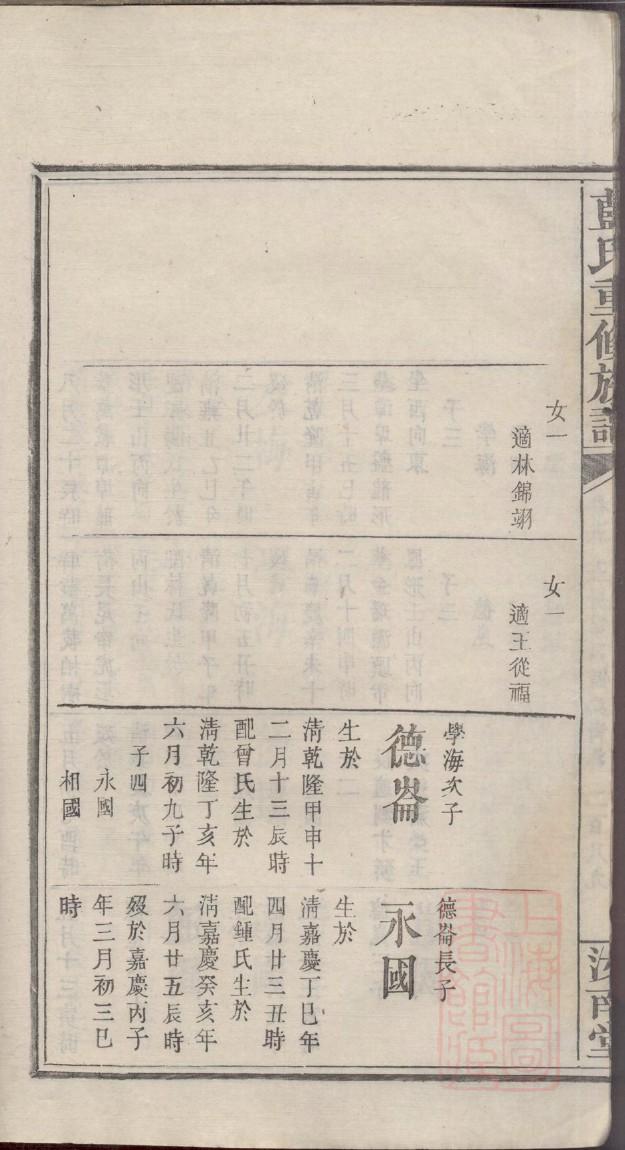 藍氏重修族譜
汝南堂
女一
適林錦翊
女一
適王從福
學海次子
德崙
生於
清乾隆甲申十
二月十三辰時
配曾氏生於
清乾隆丁亥年
六月初九子時
子四
永國
相國
德崙長子
永國
生於
清嘉慶丁巳年
四月廿三丑時
配鍾氏生於
清嘉慶癸亥年
六月廿五辰時
歿於嘉慶丙子
年三月初三巳
時